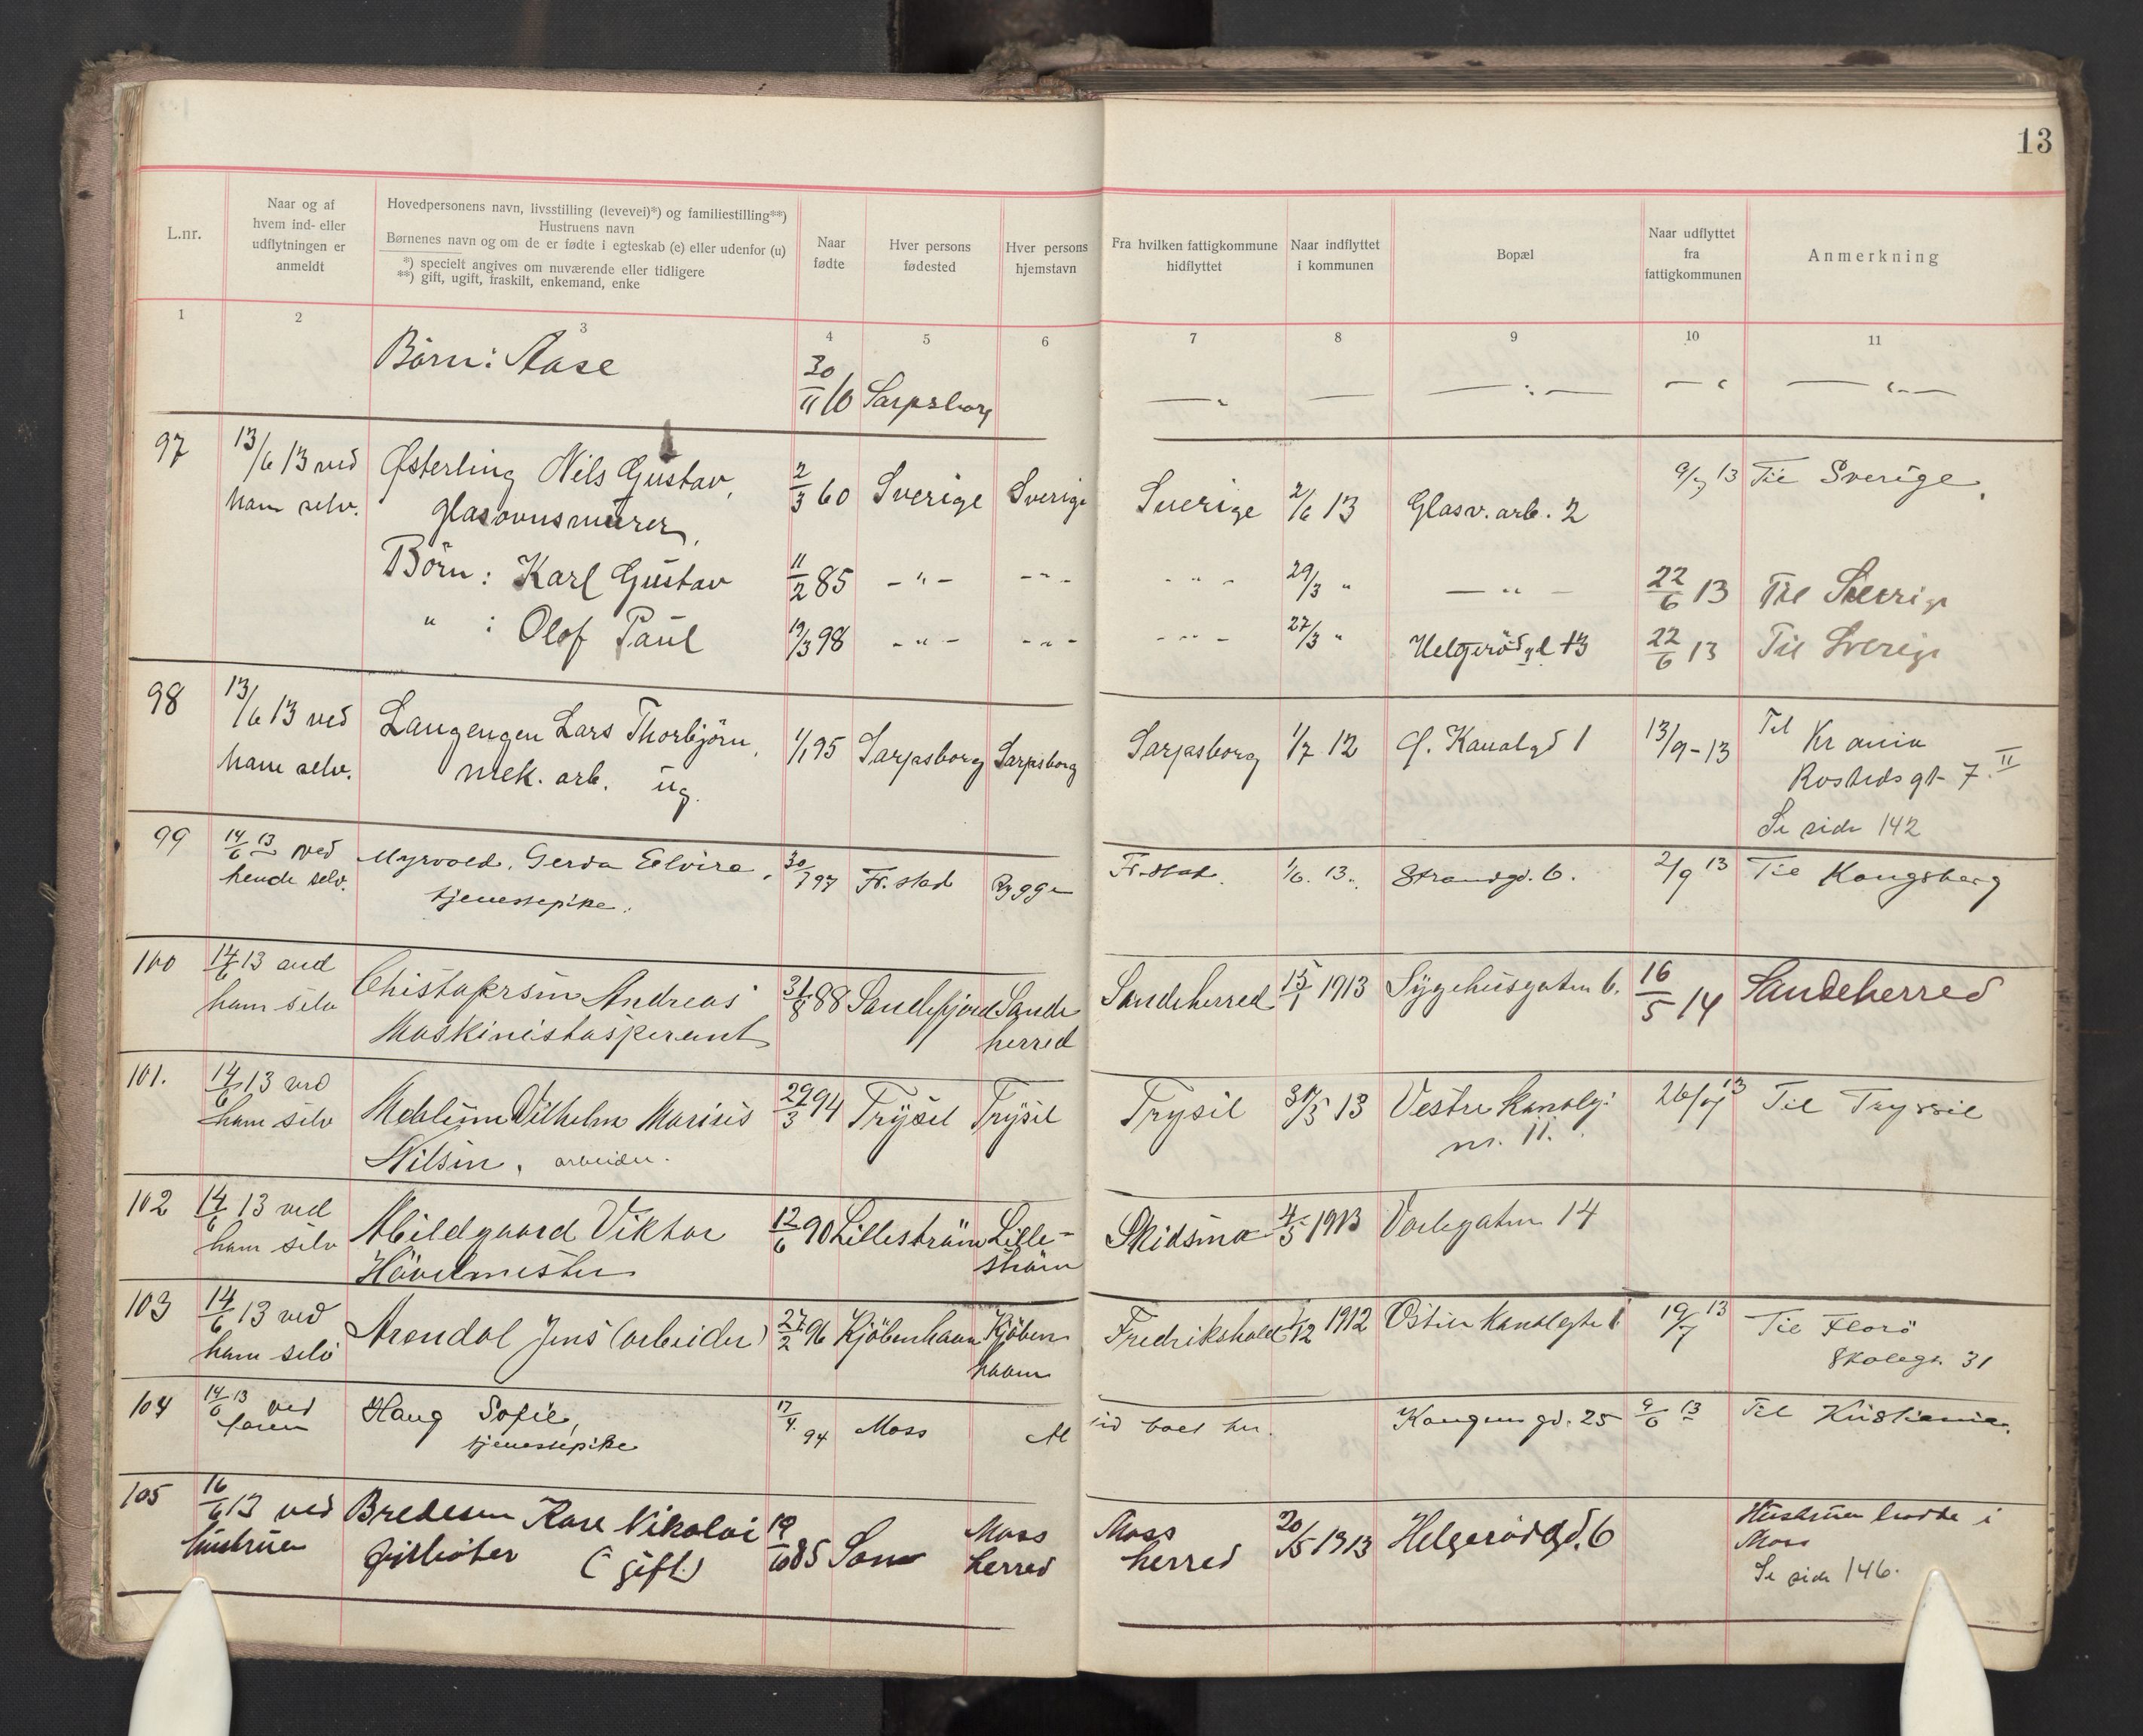 13
L.nr.
Naar og af
hvem ind- eller
udflytningen er
anmeldt
Hovedpersonens navn, livsstilling (levevei)*) og familiestilling**)
Hustruens navn
Børnenes navn og om de er fødte i egteskab (e) eller udenfor (u)
*) specielt angives om nuværende eller tidligere
**) gift, ugift, fraskilt, enkemand, enke
Naar
fødte
Hver persons
fødested
Hver persons
hjemstavn
Fra hvilken fattigkommune
hidflyttet
Naar indflyttet
i kommunen
Bopæl
Naar udflyttet
fra
fattigkommunen
Anmerkning
1 2 3 4 5 6 7 8 9 10 11
Börn: Aase 30/11 10 Sarpsborg
97 13/6 13 ved Østerling Nils Gustav, 2/3 60 Sverige Sverige Sverige 2/6 13 Glasv. arb. 2 13 Til Sverige.
ham selv. glasovnsmurer,
Börn: Karl Gustav 11/2 85 - " - - " - - " - 29/3 " — " — 22/6 13 Til Sverige
" : Olof Paul 19/3 98 - " - - " - - " - 27/3 " Helgerödgd 13 22/6 13 Til Sverige
98 13/6 13 ved Langengen Lars Thorbjörn, 1/1 95 Sarpsborg Sarpsborg Sarpsborg 1/7 12 Ø. Kanalgd 1 13/9-13 Til Kr ania
ham selv. mek. arb. ug. Rosteds gt- 7. II
Se side 142
99 14/6 13 ved Myrvold, Gerda Elvira, 30/7 97 Fr.stad Rygge Fr.stad. 1/6. 13. Strandgd. 6. 2/9 13 Til Kongsberg
hende selv. tjenestepike.
100 14/6 13 ved Christofersen Andreas 31/8 88 Sandefjord Sande Sandeherred 15/1 1913 Sygehusgaten 6. 16/5 14 Sandeherred
ham selv Maskinistaspirant herred
101. 14/6 13 ved Mehlum Vilhelm Marius 29/3 94 Trysil Trysil Trysil 13 Vestre Kanalg: 26/7 13 Til Trysil
ham selv Nilsen, arbeider. nr. 11.
102 14/6 13 ved Abildgaard Viktor 12/6 90 Lilleström Lille- Skidsmo 4/5 1913 Varlegaten 14
ham selv Hövelmester ström
103 14/6 13 ved Arendal Jens (arbeider) 27/2 96 Kjöbenhavn Kjöben Fredrikshald 1/12 1912 Östre Kanalgate 1 19/7 13 Til Florö
ham selv havn Skolegt. 31
104 14/6 13 ved Haug Sofie, 17/4. 94 Moss Al tid boet her. Kongens gd. 25 9/6 13 Til Kristiania.
faren tjenestepike
105 16/6 13 ved Bredesen Kare Nikolai 19/10 85 Son Moss Moss 20/5 1913 Helgerödgd. 6 Hustruen bodde i
hustruen (gift) herred herred Moss
Se side 146.